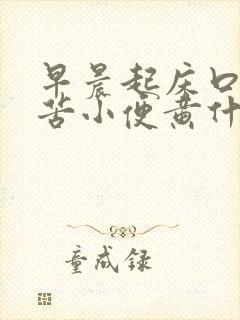 早晨起床口
苦小便黄什
童成録